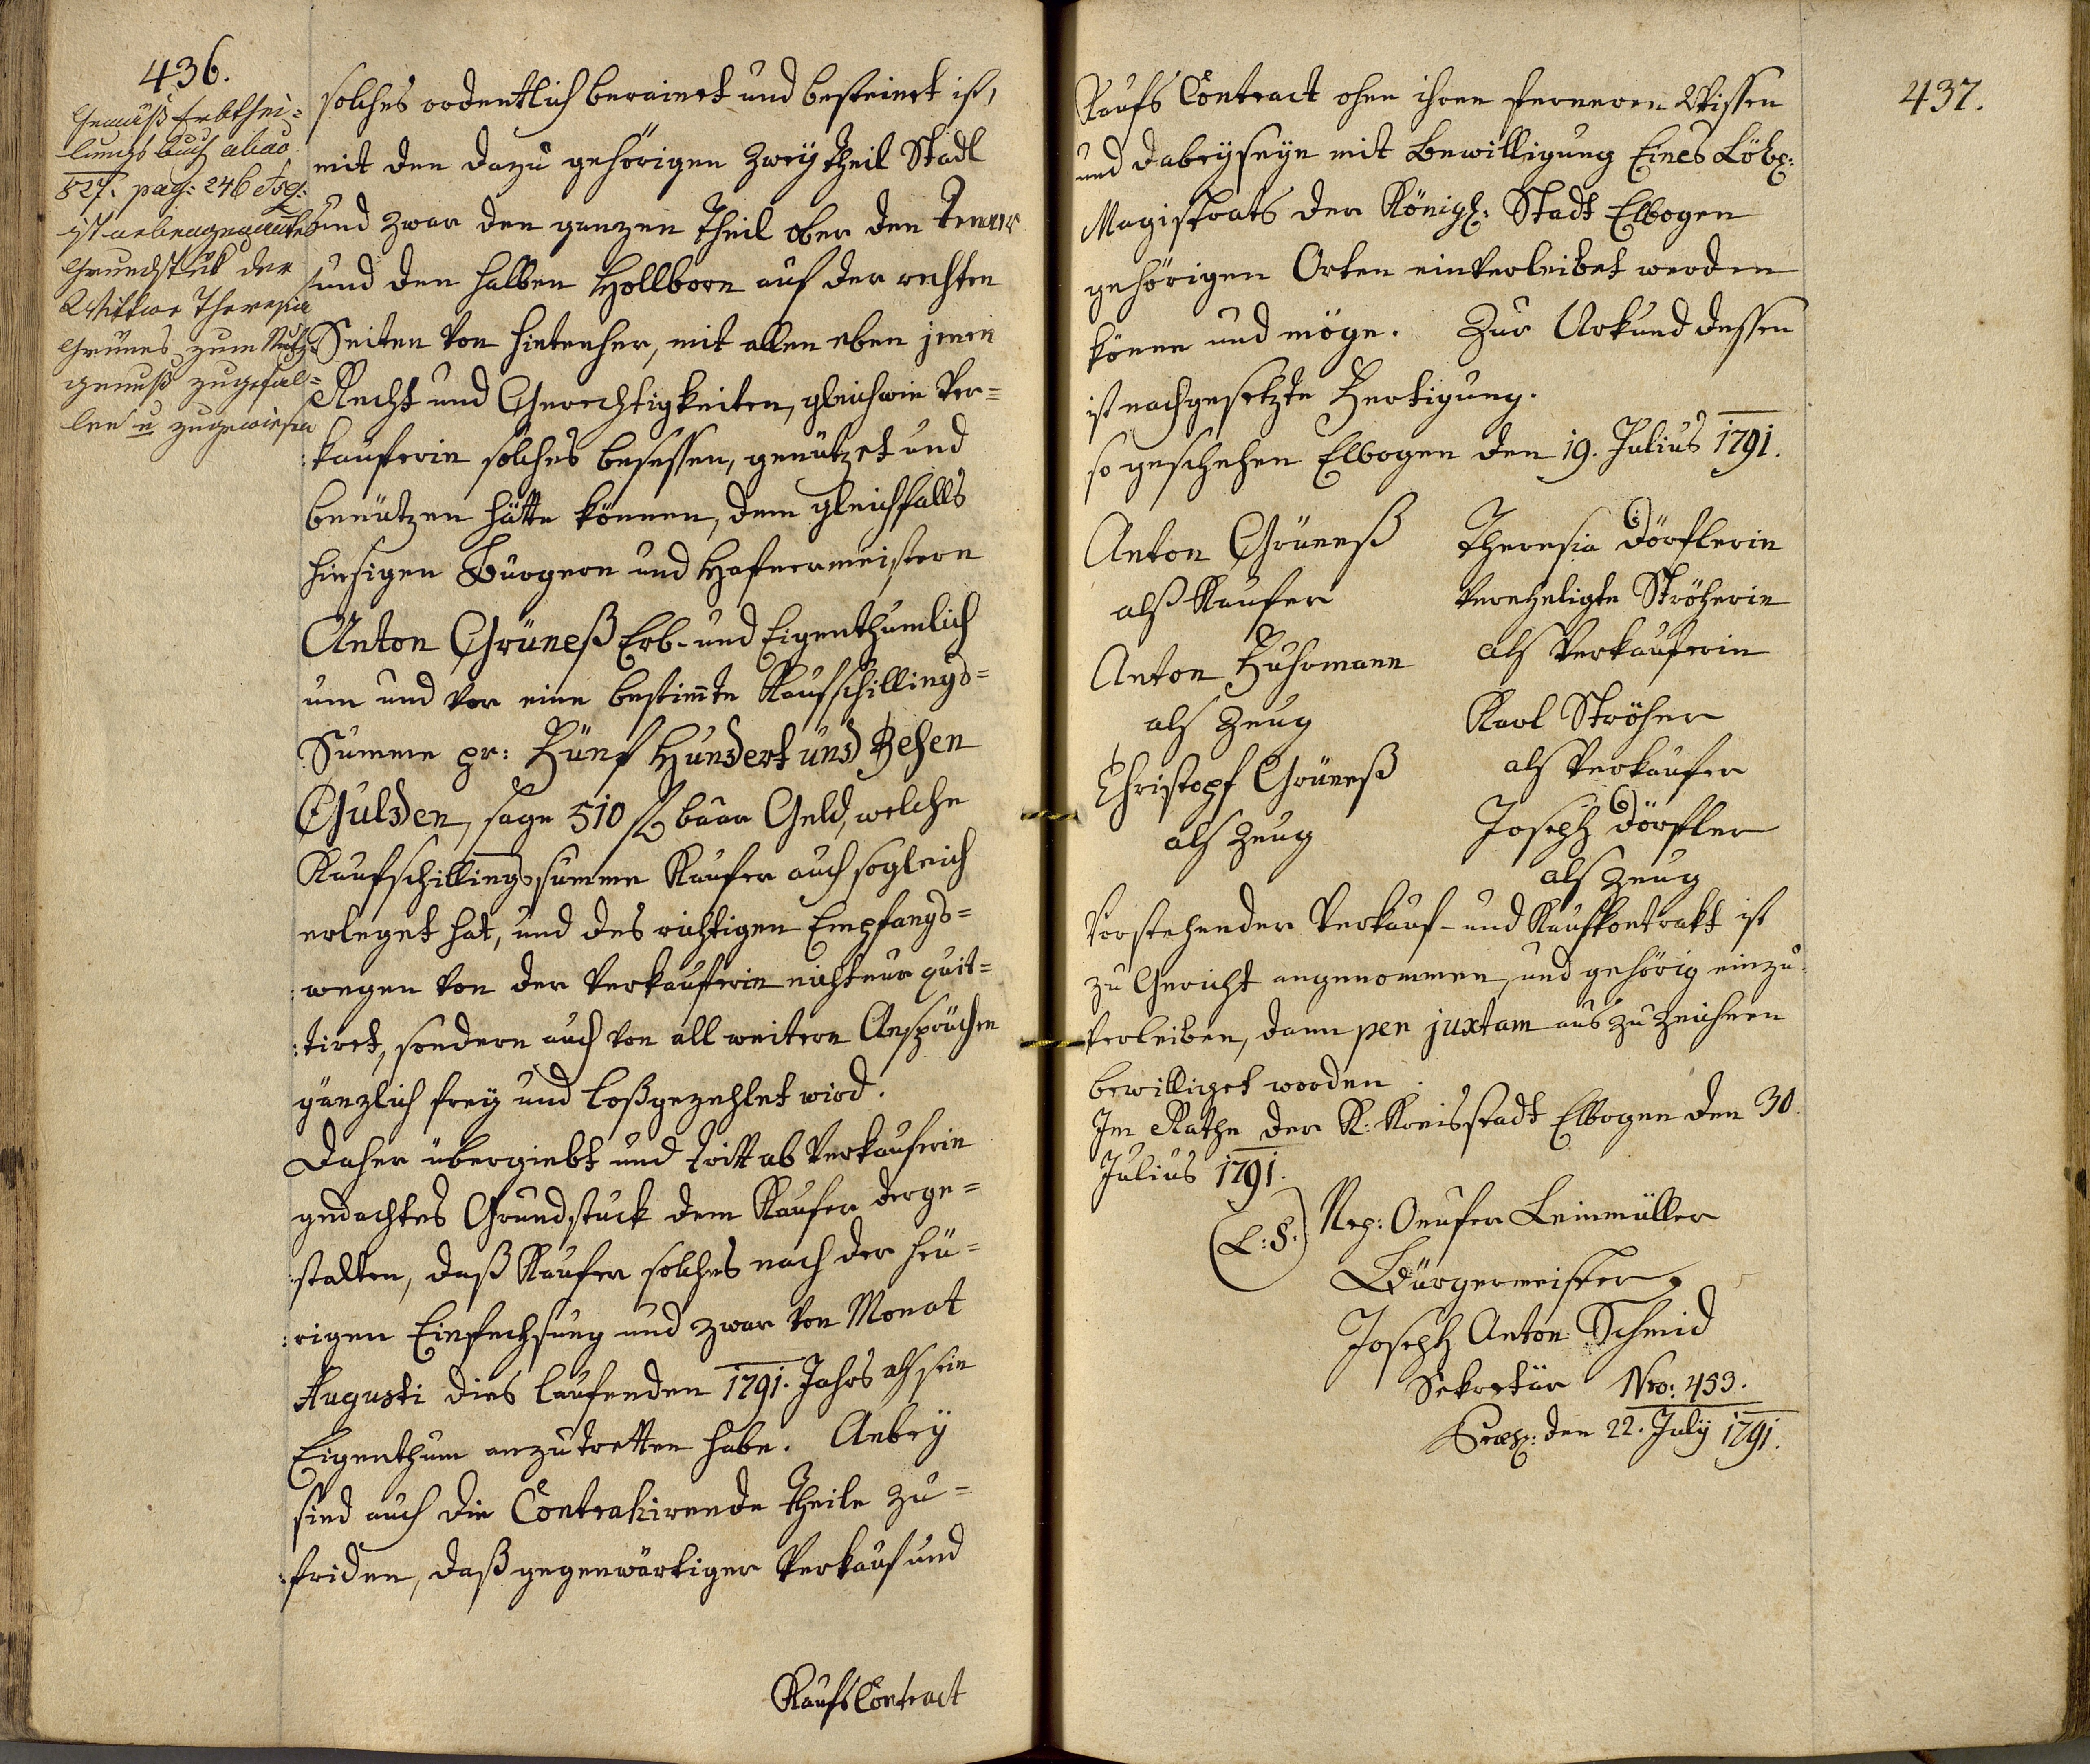 436.
Gemäß Erbthei-
lungs buch aliao
527. pag: 246 seq:
ist nebengenantes
Grundstük der
Wittwe Theresia
Grünes zum Nutz-
genuß zugefal-
len u zugewiesen
solches ordentlich berainet und besteinet ist,
mit den dazu gehörigen Zwey theil Stadl
und zwar den ganzen Theil ober den Tenner
und den halben Hollborn auf der rechten
Seiten von hintenher, mit allen eben jenen
Recht und Gerechtigkeiten, gleichwie Ver-
:kaüfferin solches besessen, genützet und
benützen hätte können, dem gleichfalls
hiesigen Bürgern und Hafnermeistern
Anton Grüneß Erb- und Eigenthumlich
um und vor eine bestim̄te Kaufschillings-
Summe pr: Fünf Hundert und Zehen
Gulden, sage 510 f baar Geld, welche
Kaufschillings summe Kaufer auch sogleich
erleget hat, und des richtigen Empfangs-
:wegen von der Verkäufferin nicht nur quit-
:tiret, sondern auch von all weitern Ansprüchen
gänzlich frey und loßgezehlet wird.
Daher übergiebt und tritt ab Verkauferin
gedachtes Grundstuck dem Kaufer derge-
:stalten, daß Kaufer solches nach der heü-
:rigen Einfechsung und zwar von Monat
Augusti dies laufenden 1791. Jahrs als sein
Eigenthum anzutretten habe. Anbey
sind auch die Contrahirende Theile zu-
:friden, daß gegenwärtiger Verkauf und
Kaufs Contract
437.
Kaufs Contract ohne ihren ferneren Wissen
und dabeyseyn mit Bewilligung Eines Löbl:
Magistrats der Königl: Stadt Elbogen
gehörigen Orten einverleibet werden
könne und möge. Zur Urkund dessen
ist nachgesetzte Fertigung.
so geschehen Elbogen den 19. Julius 1791.
Anton Grüneß
als Kaufer
Anton Fuhrmann
als Zeug
Christoph Grüneß
als Zeug
Theresia Dörflerin
Verehligte Ströherin
als Verkauferin
Karl Ströher
als Verkaufer
Joseph Dörfler
als Zeug
Vorstehender Verkauf- und Kaufkontrakt ist
zu Gericht angenommen, und gehörig einzu-
verleiben, dann per juxtam auszuzeichnen
bewilliget worden.
Im Rathe der K: Kreisstadt Elbogen den 30.
Julius 1791.
(L:S:) Nep: Onufer Leinmüller
Bürgermeister
Joseph Anton Schmid
Sekretär Nro: 453.
Præs: den 22. July 1791.